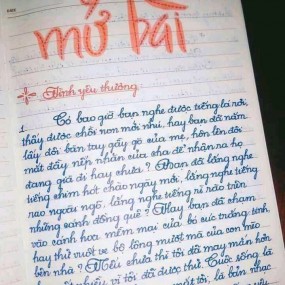 mở bài
Tình yêu thương
1. Có bao giờ bạn nghe được tiếng lá rơi,
thấy được chồi non mới nhú, hay bạn đã nắm
lấy đôi bàn tay gầy gò của mẹ, hôn lên đôi
mắt đầy nếp nhăn của cha để nhận ra họ
đang già đi hay chưa? Bạn đã lắng nghe
tiếng chim hót chào ngày mới, lắng nghe tiếng
rao ngoài ngõ, lắng nghe tiếng rì rào trên
những cánh đồng quê? Hay bạn đã chạm
vào cánh hoa mềm mại của bó cúc trắng tinh,
hay thử vuốt ve bộ lông mượt mà của con mèo
bên nhà? Nếu chưa thì tôi đã may mắn hơn
vì tôi đã được thử. Cuộc sống là
một tôi, là bản nhạc